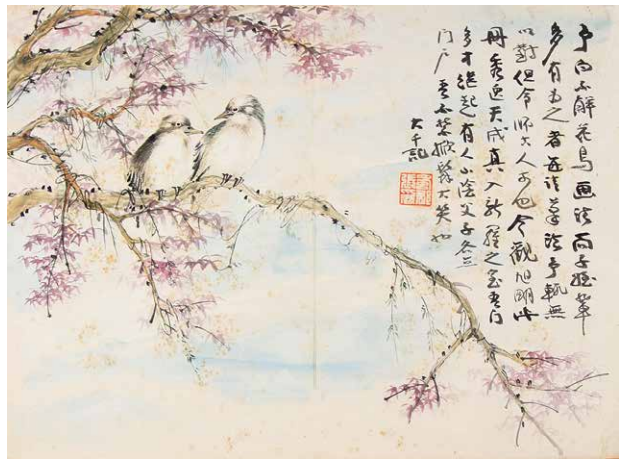 予向不解花鳥畫法而子姪輩
多有為之者每請筆法予輒無
以對但令師人可也今觀旭明此
冊秀逸天成真入新羅之室吾門
多才繼起有人山陰父子各立
門戶吾不禁掀髯大笑也
大千記